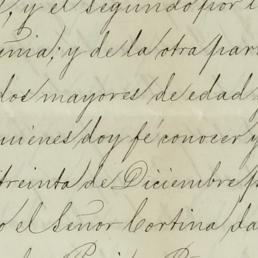 y el segundo por l
nia; y de la otra par
dos mayores de edad
uienes doy fé conocer y
treinta de Diciembre p
o el Señor Cortina da